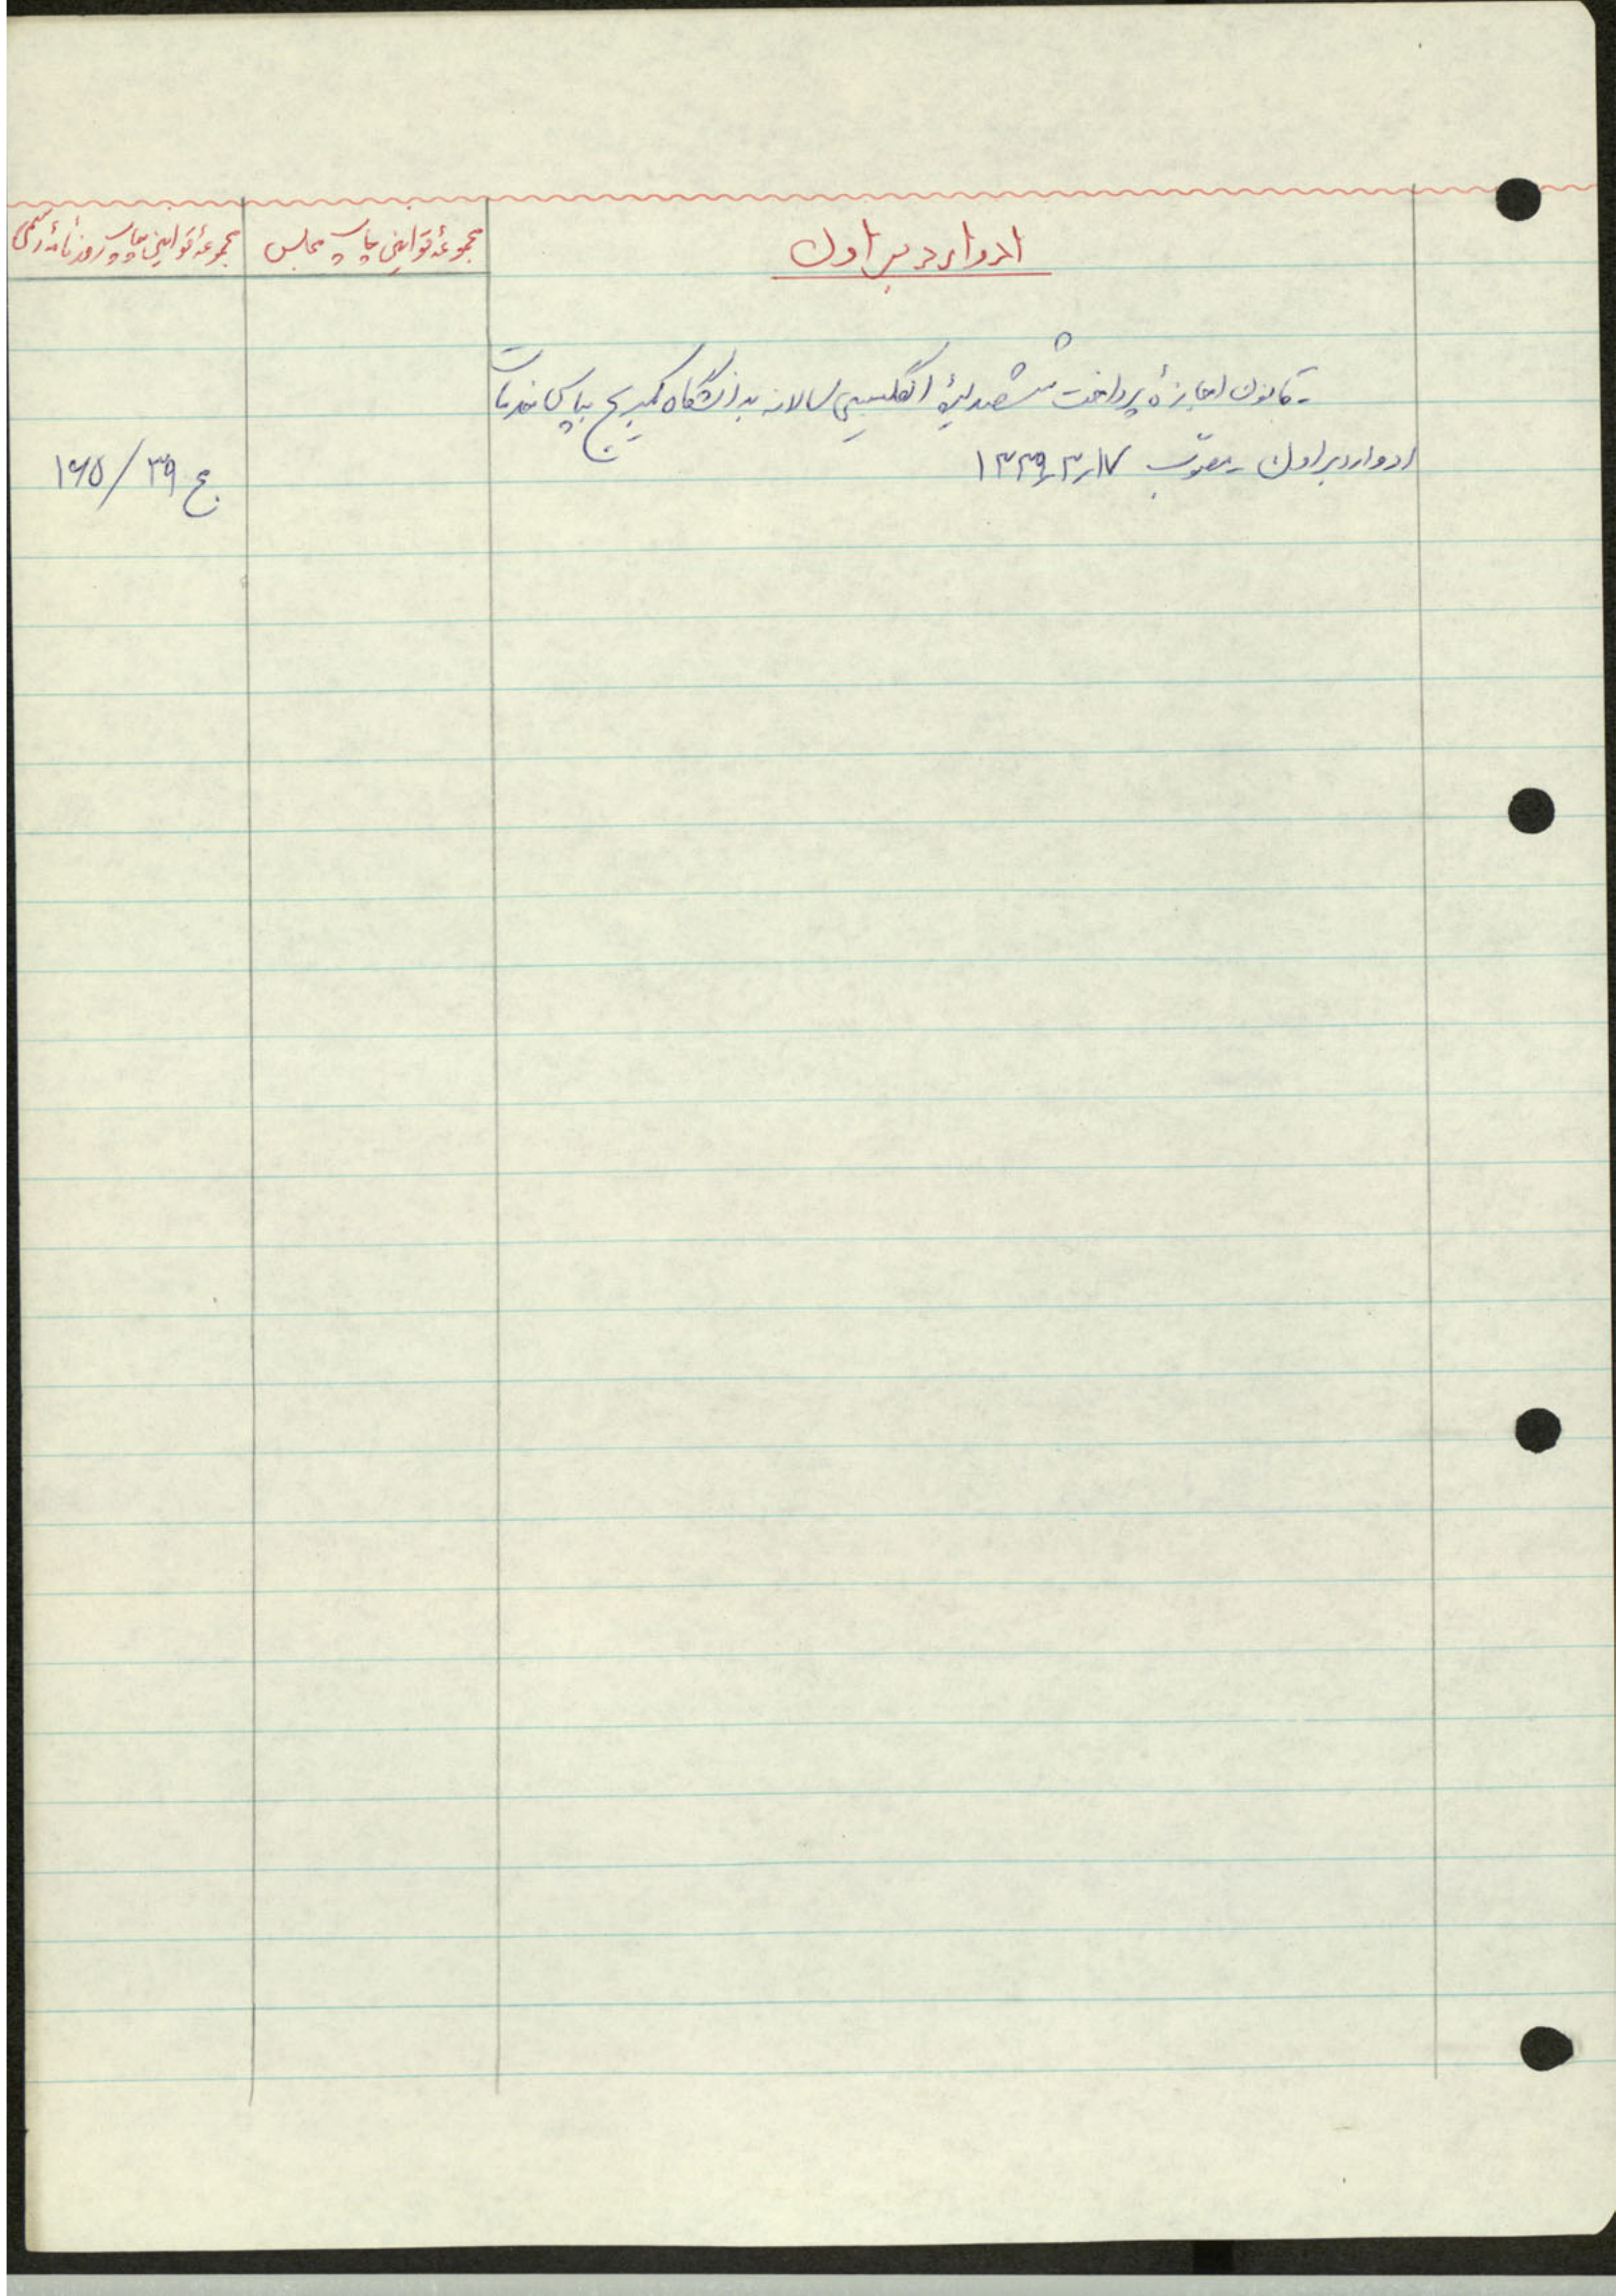 ادوارد براون
مجموعهٔ قوانین چاپ مجلس
مجموعهٔ قوانین چاپ روزنامهٔ رسمی
- قانون اجازهٔ پرداخت ششصد لیرهٔ انگلیسی سالانه به دانشگاه کمبریج بپاس خدمات
ادوارد براون - مصوّب ۱۳۳۹٫۳٫۱۷
ج ۳۹/۱۶۵